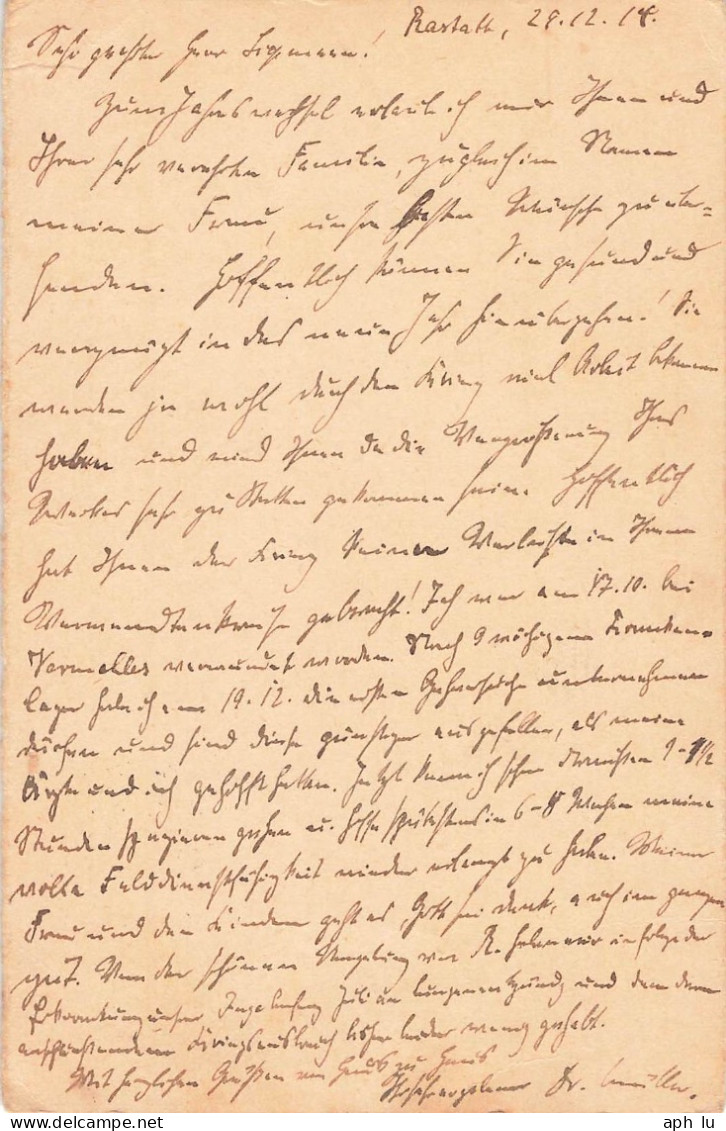 Rastatt, 29.12.14.
Sehr geehrter Herr !
Zum Jahreswechsel erlaube ich mir Ihnen und
Ihrer sehr verehrten Familie, zugleich im Namen
meiner Frau, unsere besten Wünsche zu über-
senden. Hoffentlich können Sie gesund und
vergnügt in das neue Jahr hinübergehen! Sie
werden ja wohl durch den Krieg viel Arbeit bekommen
haben und wird Ihnen da die Vergrößerung Ihres
Werkes sehr zu Statten gekommen sein. Hoffentlich
hat Ihnen der Krieg keinen Verluste in Ihrem
Verwandtenkreise gebracht! Ich war am 17.10. bei
Vermelles verwundet worden. Nach 9 wöchigem Kranken-
lager habe ich am 19.12. die ersten Gehversuche unternehmen
dürfen und sind diese günstiger ausgefallen, als meine
Ärzte und ich gehofft hatten. Jetzt kann ich schon draußen 1-1½
Stunden spazieren gehen u. hoffe spätestens in 6-8 Wochen meine
volle Felddienstfähigkeit wieder erlangt zu haben. Meiner
Frau und den Kindern geht es, Gott sei dank, auch im ganzen
gut. Von der schönen Umgebung von R. haben wir infolge der
Erkrankung unserer Juli an Lungenentzündg und dem dann
Kriegsausbruch bisher leider wenig gehabt.
Mit herzlichen Grüßen von Haus zu Haus
Ihr sehr ergebener Dr. Müller.
aph lu